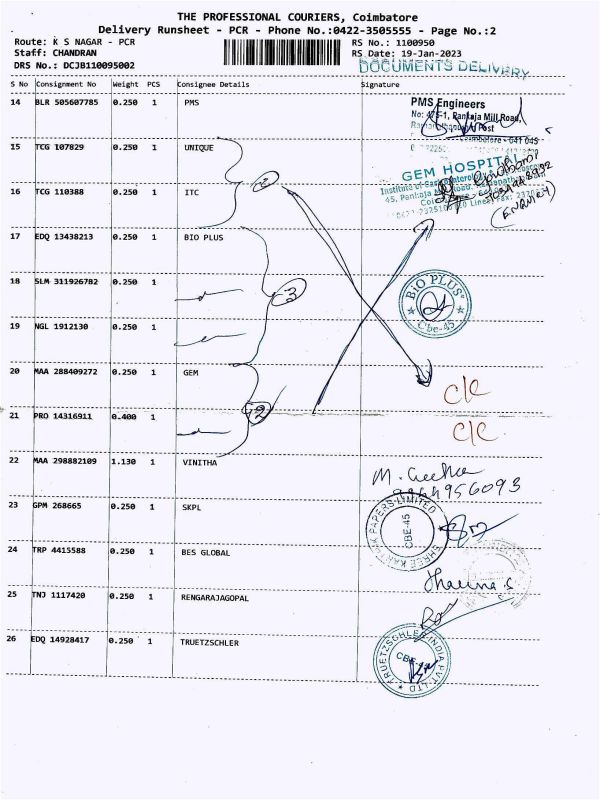 THE PROFESSIONAL COURIERS, Coimbatore
Delivery Runsheet - PCR - Phone No.:0422-3505555 - Page No.:2
Route: K S NAGAR - PCR RS No.: 1100950
Staff: CHANDRAN RS Date: 19-Jan-2023
DRS No.: DCJB110095002 DOCUMENTS DELIVERY
S No Consignment No Weight PCS Consignee Details Signature
14 BLR 505607785 0.250 1 PMS
PMS Engineers
No: 475-1, Pankaja Mill Road,
Post
Coimbatore - 641 045
15 TCG 107829 0.250 1 UNIQUE
GEM HOSPITAL
Institute of
45, Pankaja Mill Road,
16 TCG 110388 0.250 1 ITC
2
(ENQUIRY)
17 EDQ 13438213 0.250 1 BIO PLUS
18 SLM 311926782 0.250 1
3
BIO PLUS
Cbe-45
19 NGL 1912130 0.250 1
20 MAA 288409272 0.250 1 GEM
C/C
21 PRO 14316911 0.400 1
2
C/C
22 MAA 298882109 1.130 1 VINITHA
M. Geetha
956093
23 GPM 268665 0.250 1 SKPL
PAPERS LIMITED
CBE-45
SHREE
24 TRP 4415588 0.250 1 BES GLOBAL
25 TNJ 1117420 0.250 1 RENGARAJAGOPAL
26 EDQ 14928417 0.250 1 TRUETZSCHLER
TRUETZSCHLER INDIA PVT LTD
CBE